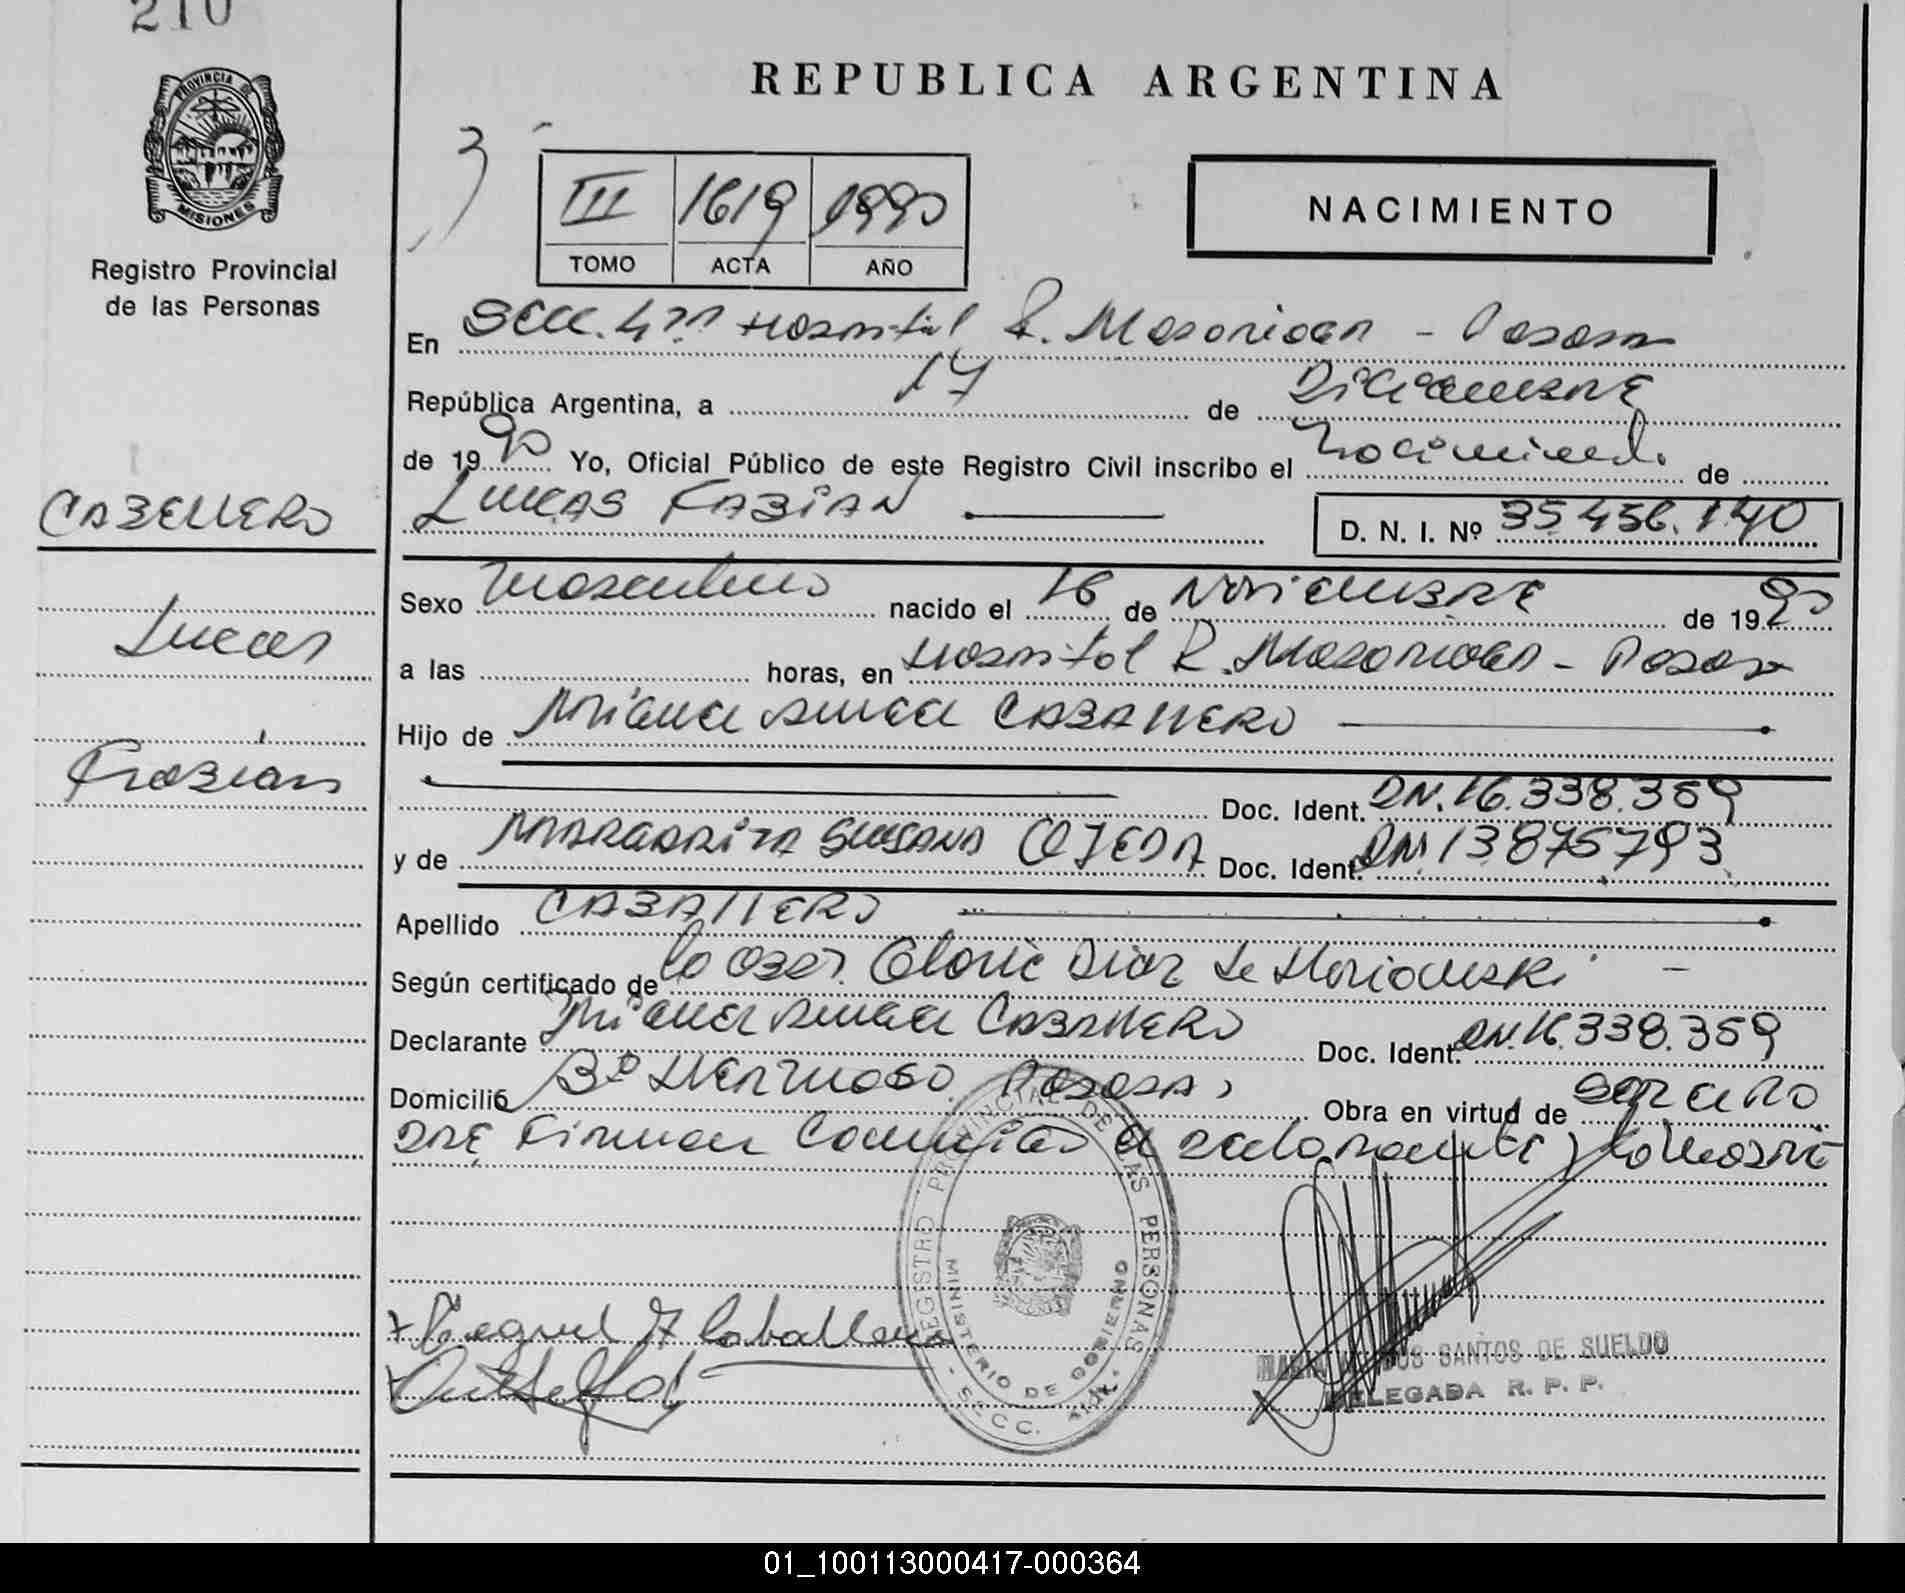 210
PROVINCIA DE
MISIONES
Registro Provincial
de las Personas
CABALLERO
Lucas
Fabian
REPUBLICA ARGENTINA
3
III 1619 1990
TOMO ACTA AÑO
NACIMIENTO
En Secc. 4ta Hospital R. Madariaga - Posadas
República Argentina, a 17 de Diciembre
de 1990 Yo, Oficial Público de este Registro Civil inscribo el Nacimiento de
LUCAS FABIAN
D. N. I. Nº 35.456.140
Sexo Masculino nacido el 16 de Noviembre de 1990
a las horas, en Hospital R. Madariaga - Posadas
Hijo de Miguel Angel CABALLERO
Doc. Ident. DNI. 16.338.359
y de MARGARITA SUSANA OJEDA Doc. Ident. DNI 13875793
Apellido CABALLERO
Según certificado de la Obst. Gloria Diaz de
Declarante Miguel Angel CABALLERO Doc. Ident. DNI. 16.338.359
Domicilio Bº Hermoso Posadas, Obra en virtud de ser
Firman el declarante y la madre
Miguel A Caballero
REGISTRO PROVINCIAL DE LAS PERSONAS
MINISTERIO DE GOBIERNO
- SECC.
SANTOS DE SUELDO
DELEGADA R. P. P.
01_100113000417-000364